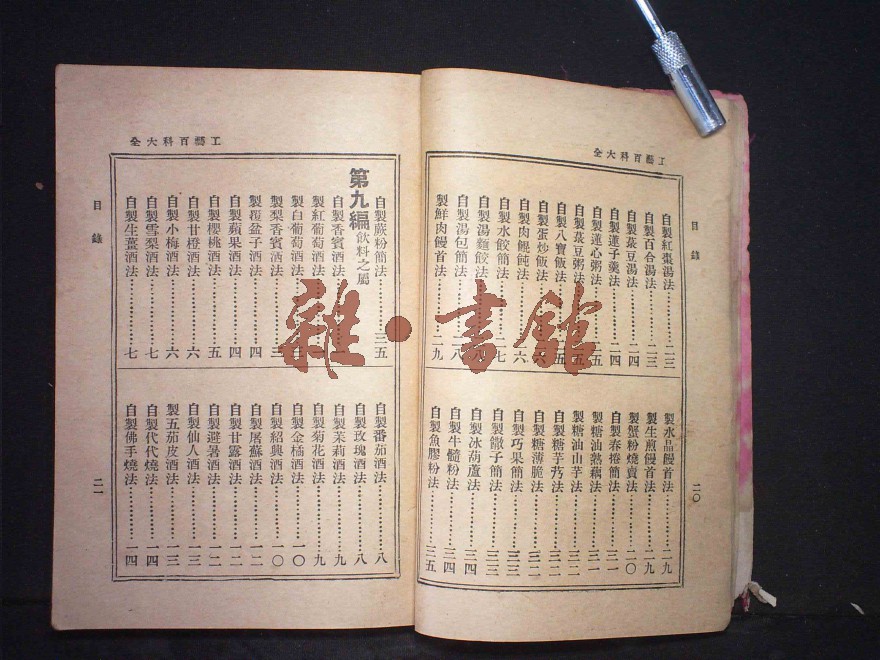 工藝百科大全
目錄
二〇
自製紅棗湯法…………二三
自製百合湯法…………二三
自製菉豆湯法…………二四
自製蓮子羹法…………二四
自製蓮心粥法…………五
自製菉豆粥法…………五
自製八寶飯法…………五
自製蛋炒飯法…………六
自製肉餛飩法…………二六
自製水餃簡法…………二七
自製湯麵餃法…………
自製湯包簡法…………八
製鮮肉饅首法…………二九
製水晶饅首法…………二九
製生煎饅首法…………二九
製蟹粉燒賣法…………三〇
自製春捲簡法…………三一
製糖油熱藕法…………三一
製糖油山芋法…………三二
自製糖芋艿法…………三二
自製糖薄脆法…………三二
自製巧果簡法…………三三
自製饊子簡法…………三三
自製冰葫蘆法…………三四
自製牛髓粉法…………三四
自製魚膠粉法…………三五
工藝百科大全
目錄
二一
自製蕨粉簡法…………三五
第九編 飲料之屬
自製香賓酒法…………
製紅葡萄酒法…………
製白葡萄酒法…………
製梨香賓酒法…………三
製覆盆子酒法…………四
自製蘋果酒法…………四
自製櫻桃酒法…………五
自製甘橙酒法…………六
自製小梅酒法…………六
自製雪梨酒法…………七
自製生薑酒法…………七
自製番茄酒法…………八
自製玫瑰酒法…………八
自製茉莉酒法…………九
自製菊花酒法…………九
自製金橘酒法…………一〇
自製紹興酒法…………一〇
自製屠蘇酒法…………一二
自製甘露酒法…………一二
自製避暑酒法…………一二
自製仙人酒法…………一三
製五茄皮酒法…………一三
自製代代燒法…………一四
自製佛手燒法…………一四
雜·書館